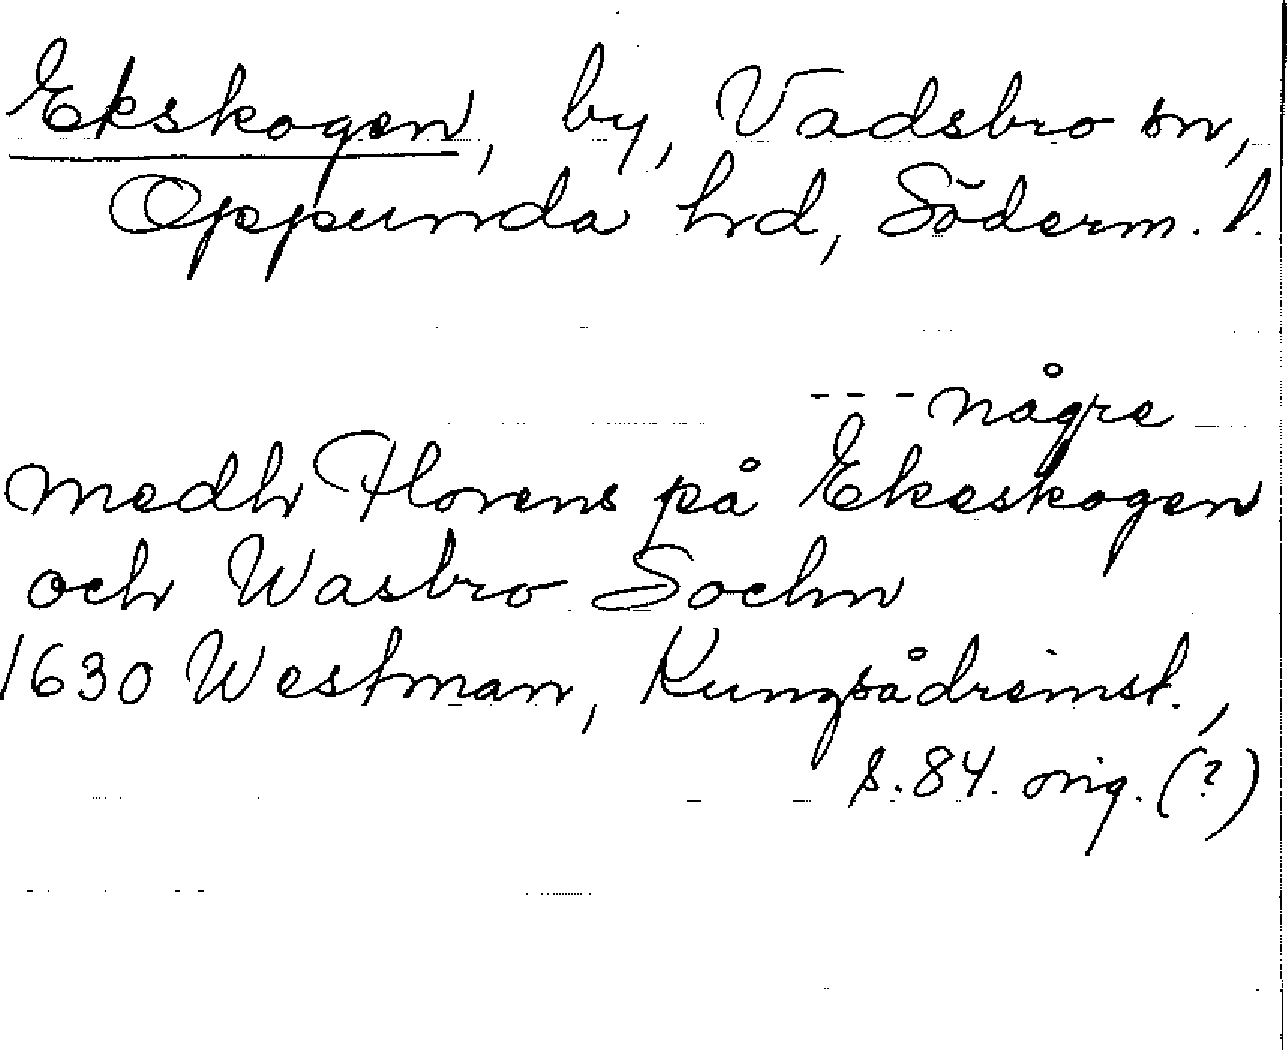 Ekskogen, by, Vadsbro sn,
Oppunda hrd, Söderm. l.
--- någre
medh Florens på Ekeskogen
och Wasbro Sochn
1630 Westman, Kungsådreinst.,
s. 84. orig. (?)